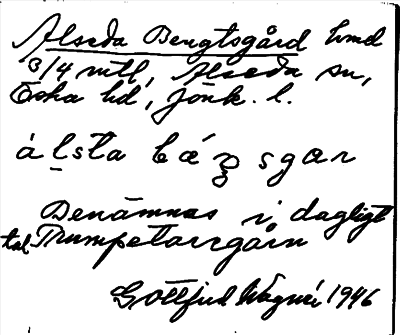 Alseda Bengtsgård hmd
3/4 mtl, Alseda sn,
Östra hd, Jönk. l.
álsta bá ʒ sgar
Benämnes i dagligt
tal Trumpetaregårn
Gottfrid Wagnér 1946